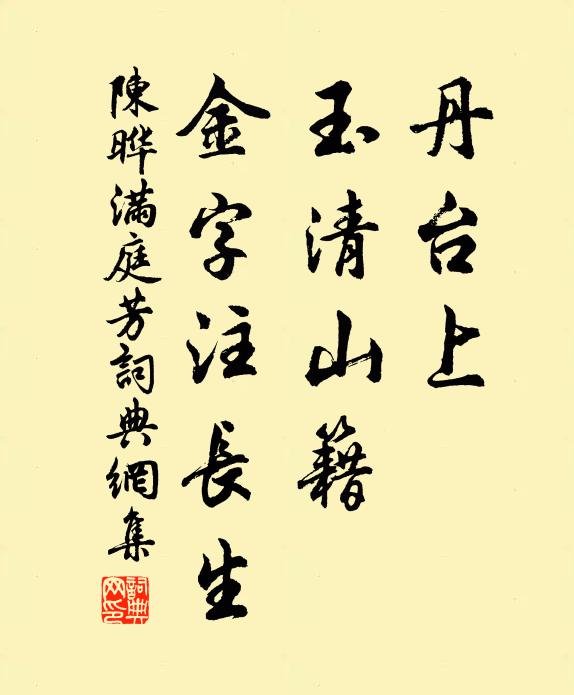 丹台上
玉清山籍
金字注長生
陳曄滿庭芳詞典網集
詞典網印